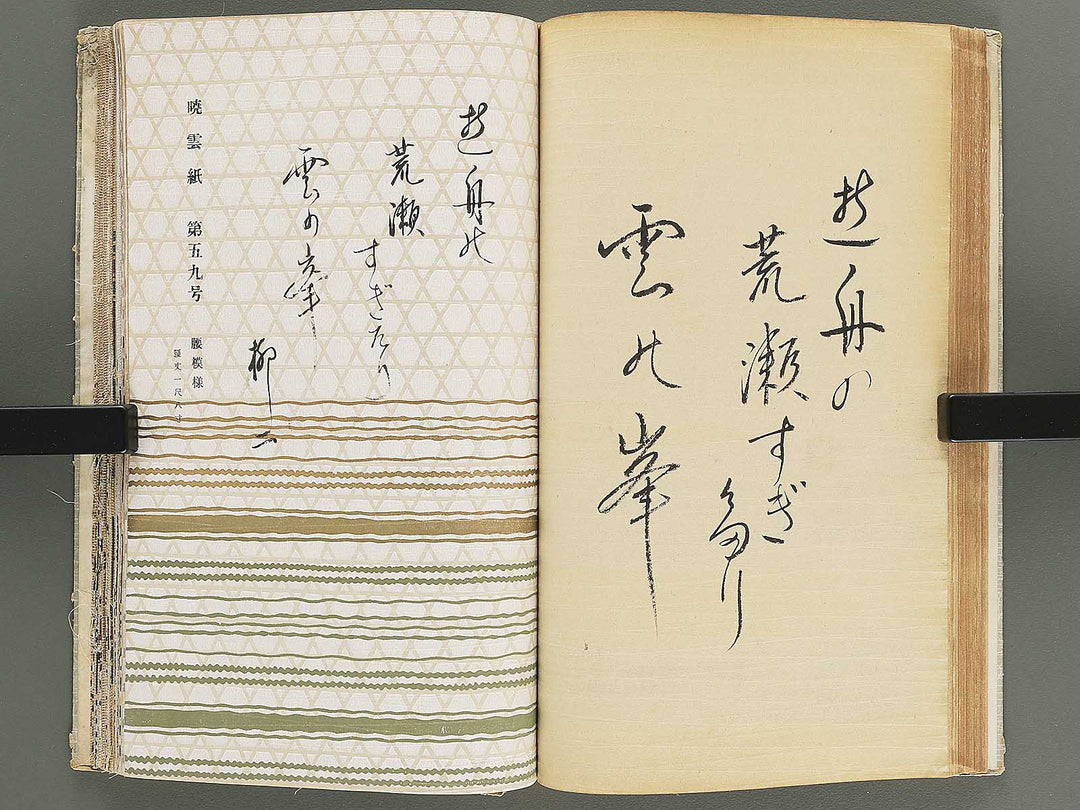 遊舟の
荒瀬すぎ
多り
雲の峯
遊舟の
荒瀬
すぎたり
雲の峯
柳二
暁雲紙 第五九号
腰模様
腰丈一尺八寸